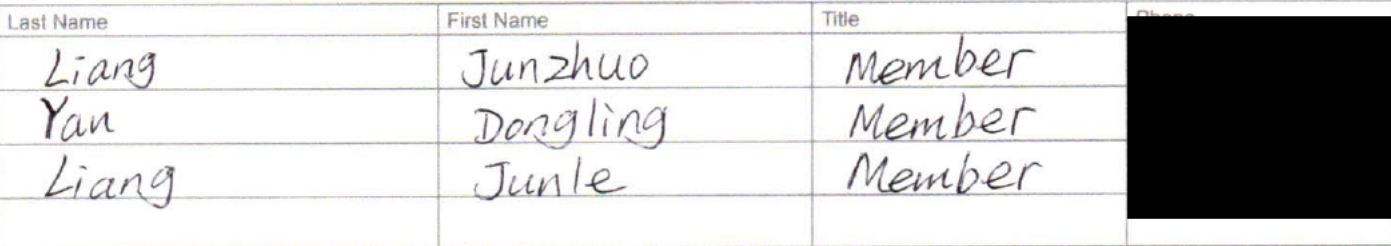 Last Name First Name Title Phone
Liang Junzhuo Member
Yan Dongling Member
Liang Junle Member